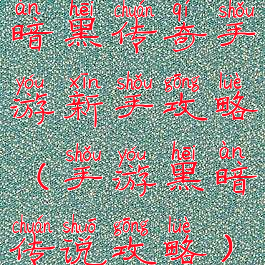 àn hēi chuán qí shǒu
暗黑传奇手
yóu xīn shǒu gōng luè
游新手攻略
shǒu yóu hēi àn
（手游黑暗
chuán shuō gōng luè
传说攻略）